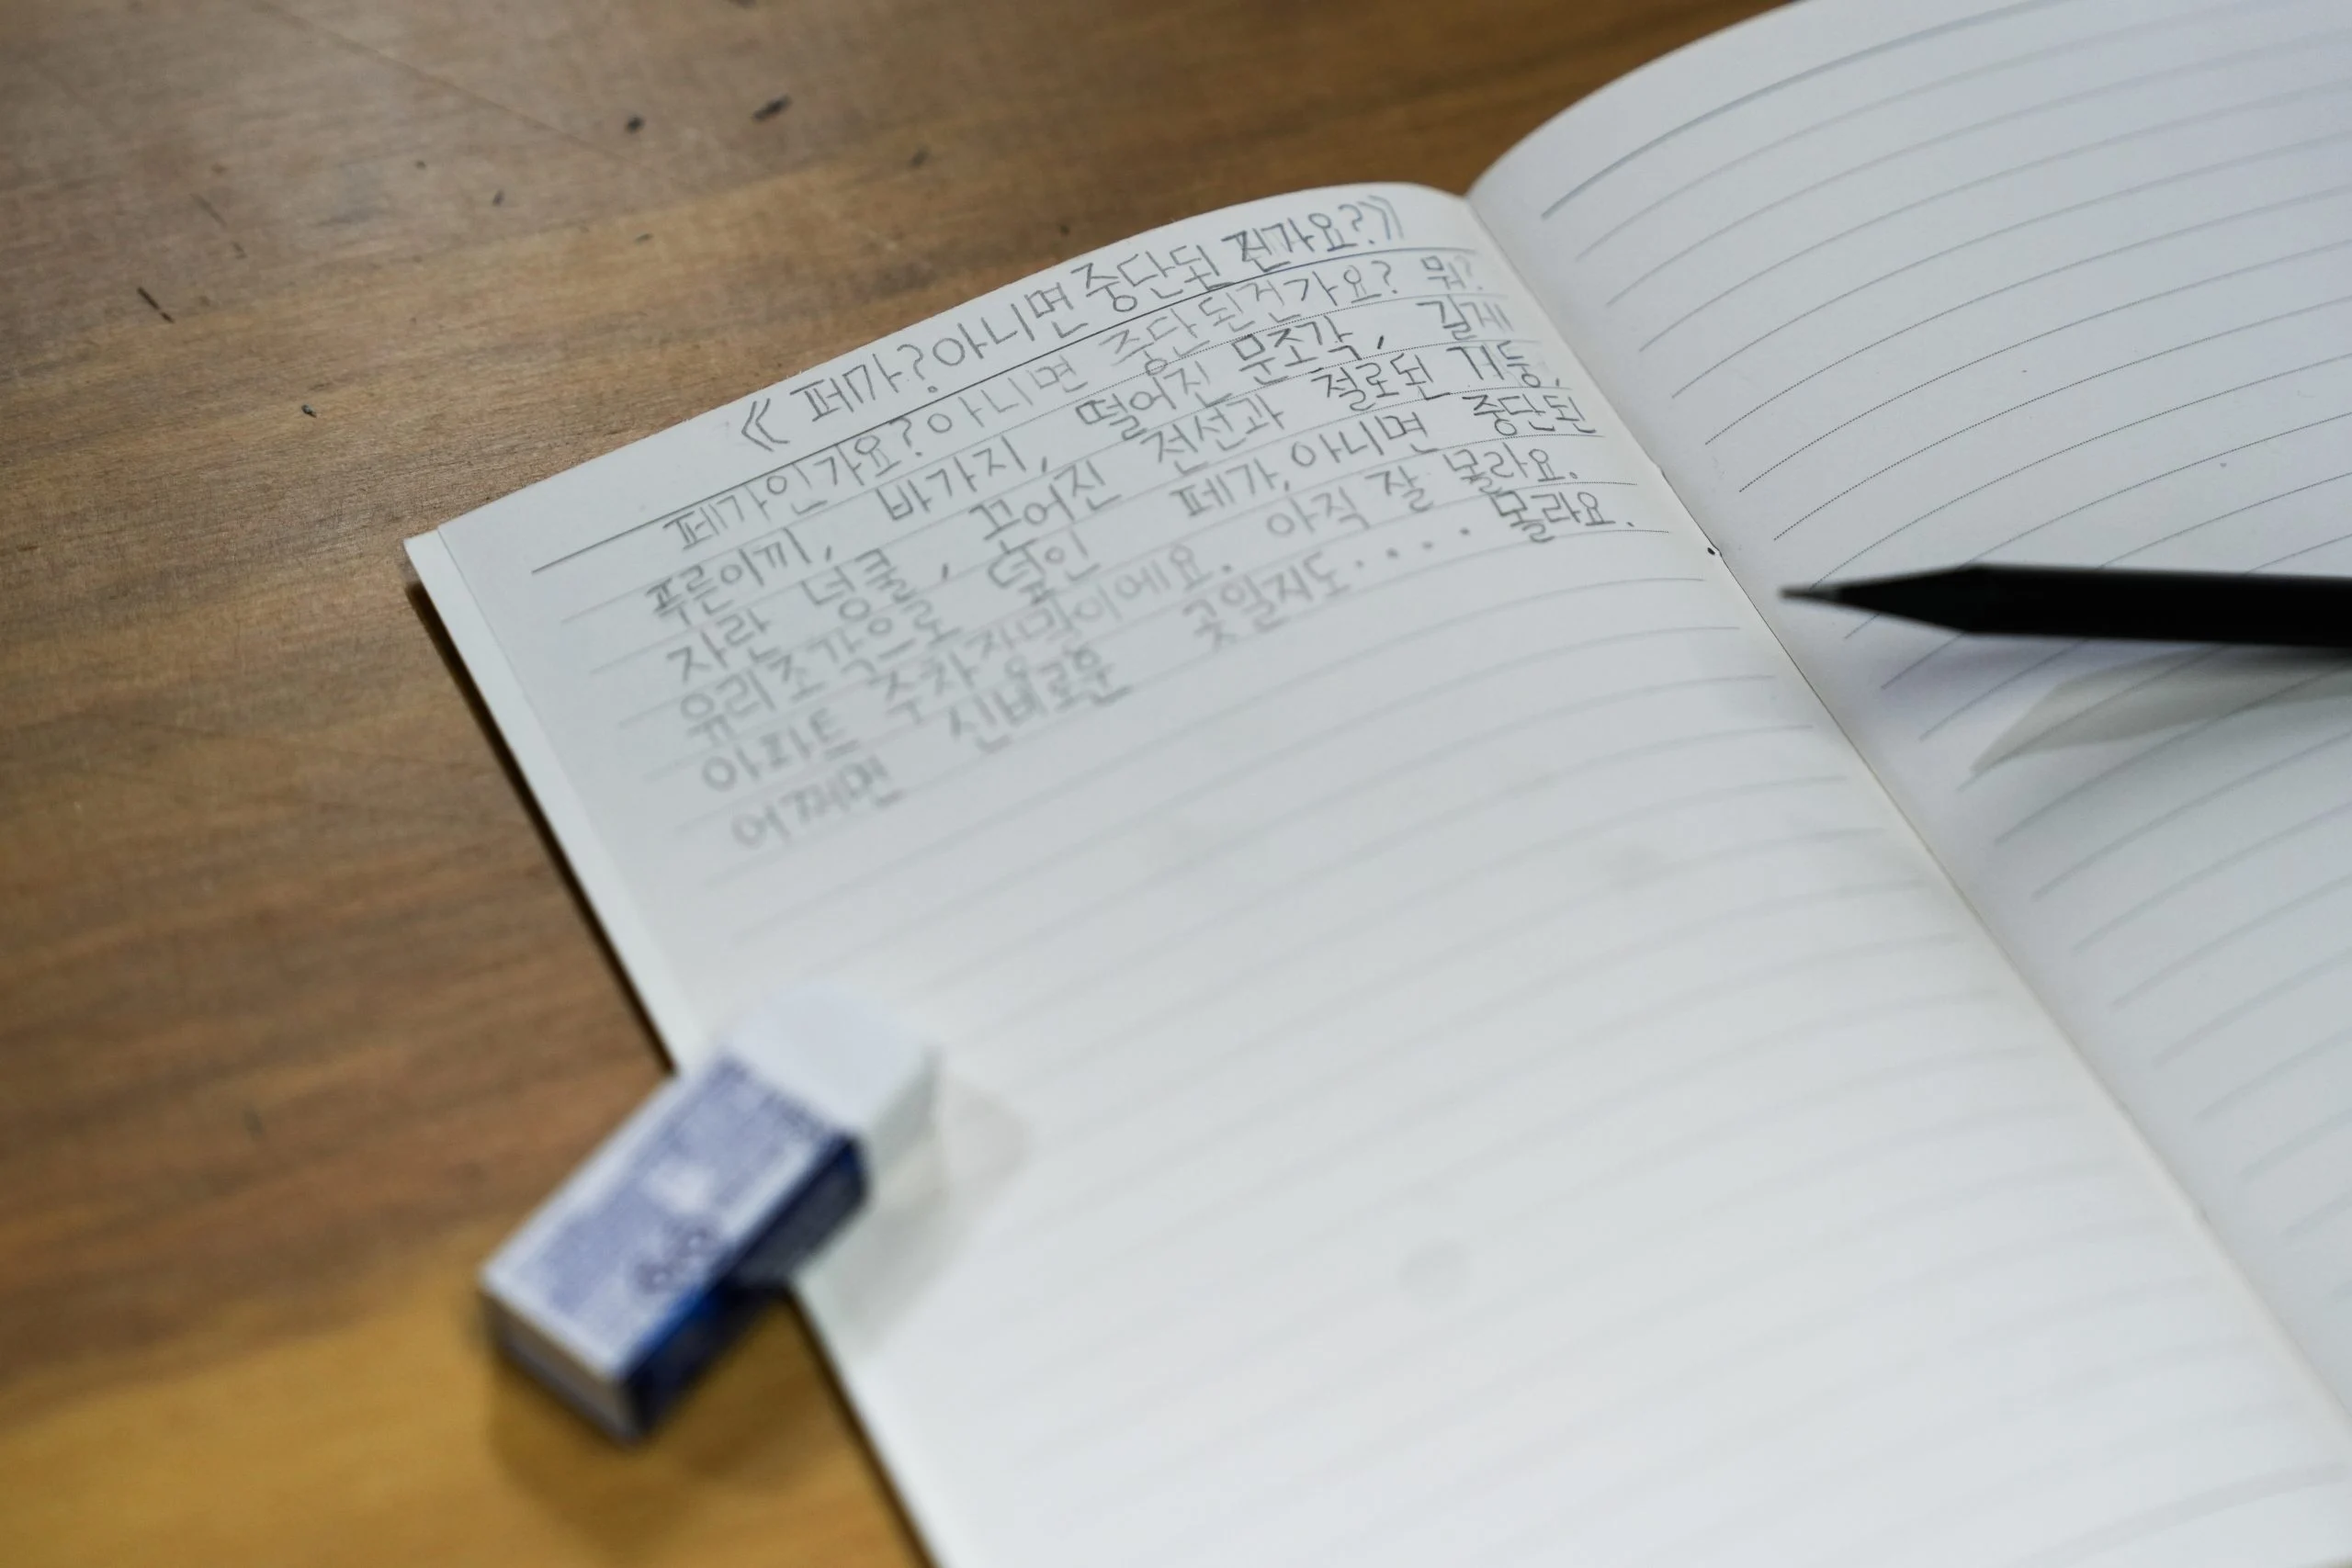 《폐가? 아니면 중단된 건가요?》
폐가인가요? 아니면 중단된건가요? 뭐?
푸른이끼, 바가지, 떨어진 문조각, 길게
자란 넝쿨, 끊어진 전선과 절로된 기둥,
유리조각으로 덮인 폐가, 아니면 중단된
아파트 주차장이에요. 아직 잘 몰라요.
어쩌면 신비로운 곳일지도····· 몰라요.